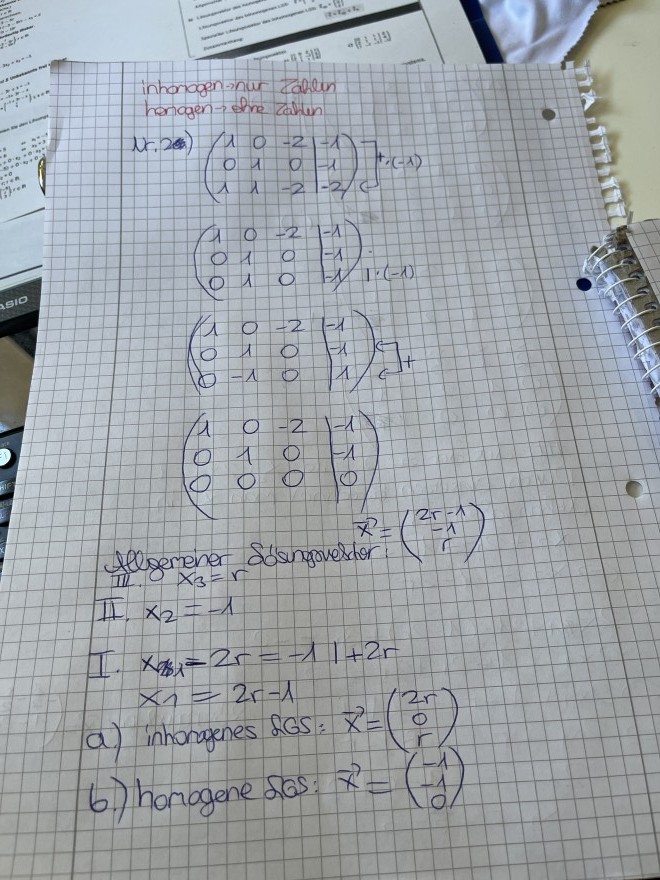 inhomogen → nur Zahlen
homogen → ohne Zahlen
Nr. 2a)
1 0 -2 | -1
0 1 0 | -1
1 1 -2 | -2
+ ·(-1)
1 0 -2 | -1
0 1 0 | -1
0 1 0 | -1 | ·(-1)
1 0 -2 | -1
0 1 0 | -1
0 -1 0 | 1
+
1 0 -2 | -1
0 1 0 | -1
0 0 0 | 0
Allgemeiner Lösungsvektor: x⃗ = (2r-1
-1
r)
III. x₃ = r
II. x₂ = -1
I. x₁ - 2r = -1 | +2r
x₁ = 2r-1
a.) inhomogenes LGS: x⃗ = (2r
0
r)
b.) homogene LGS: x⃗ = (-1
-1
0)
ASIO